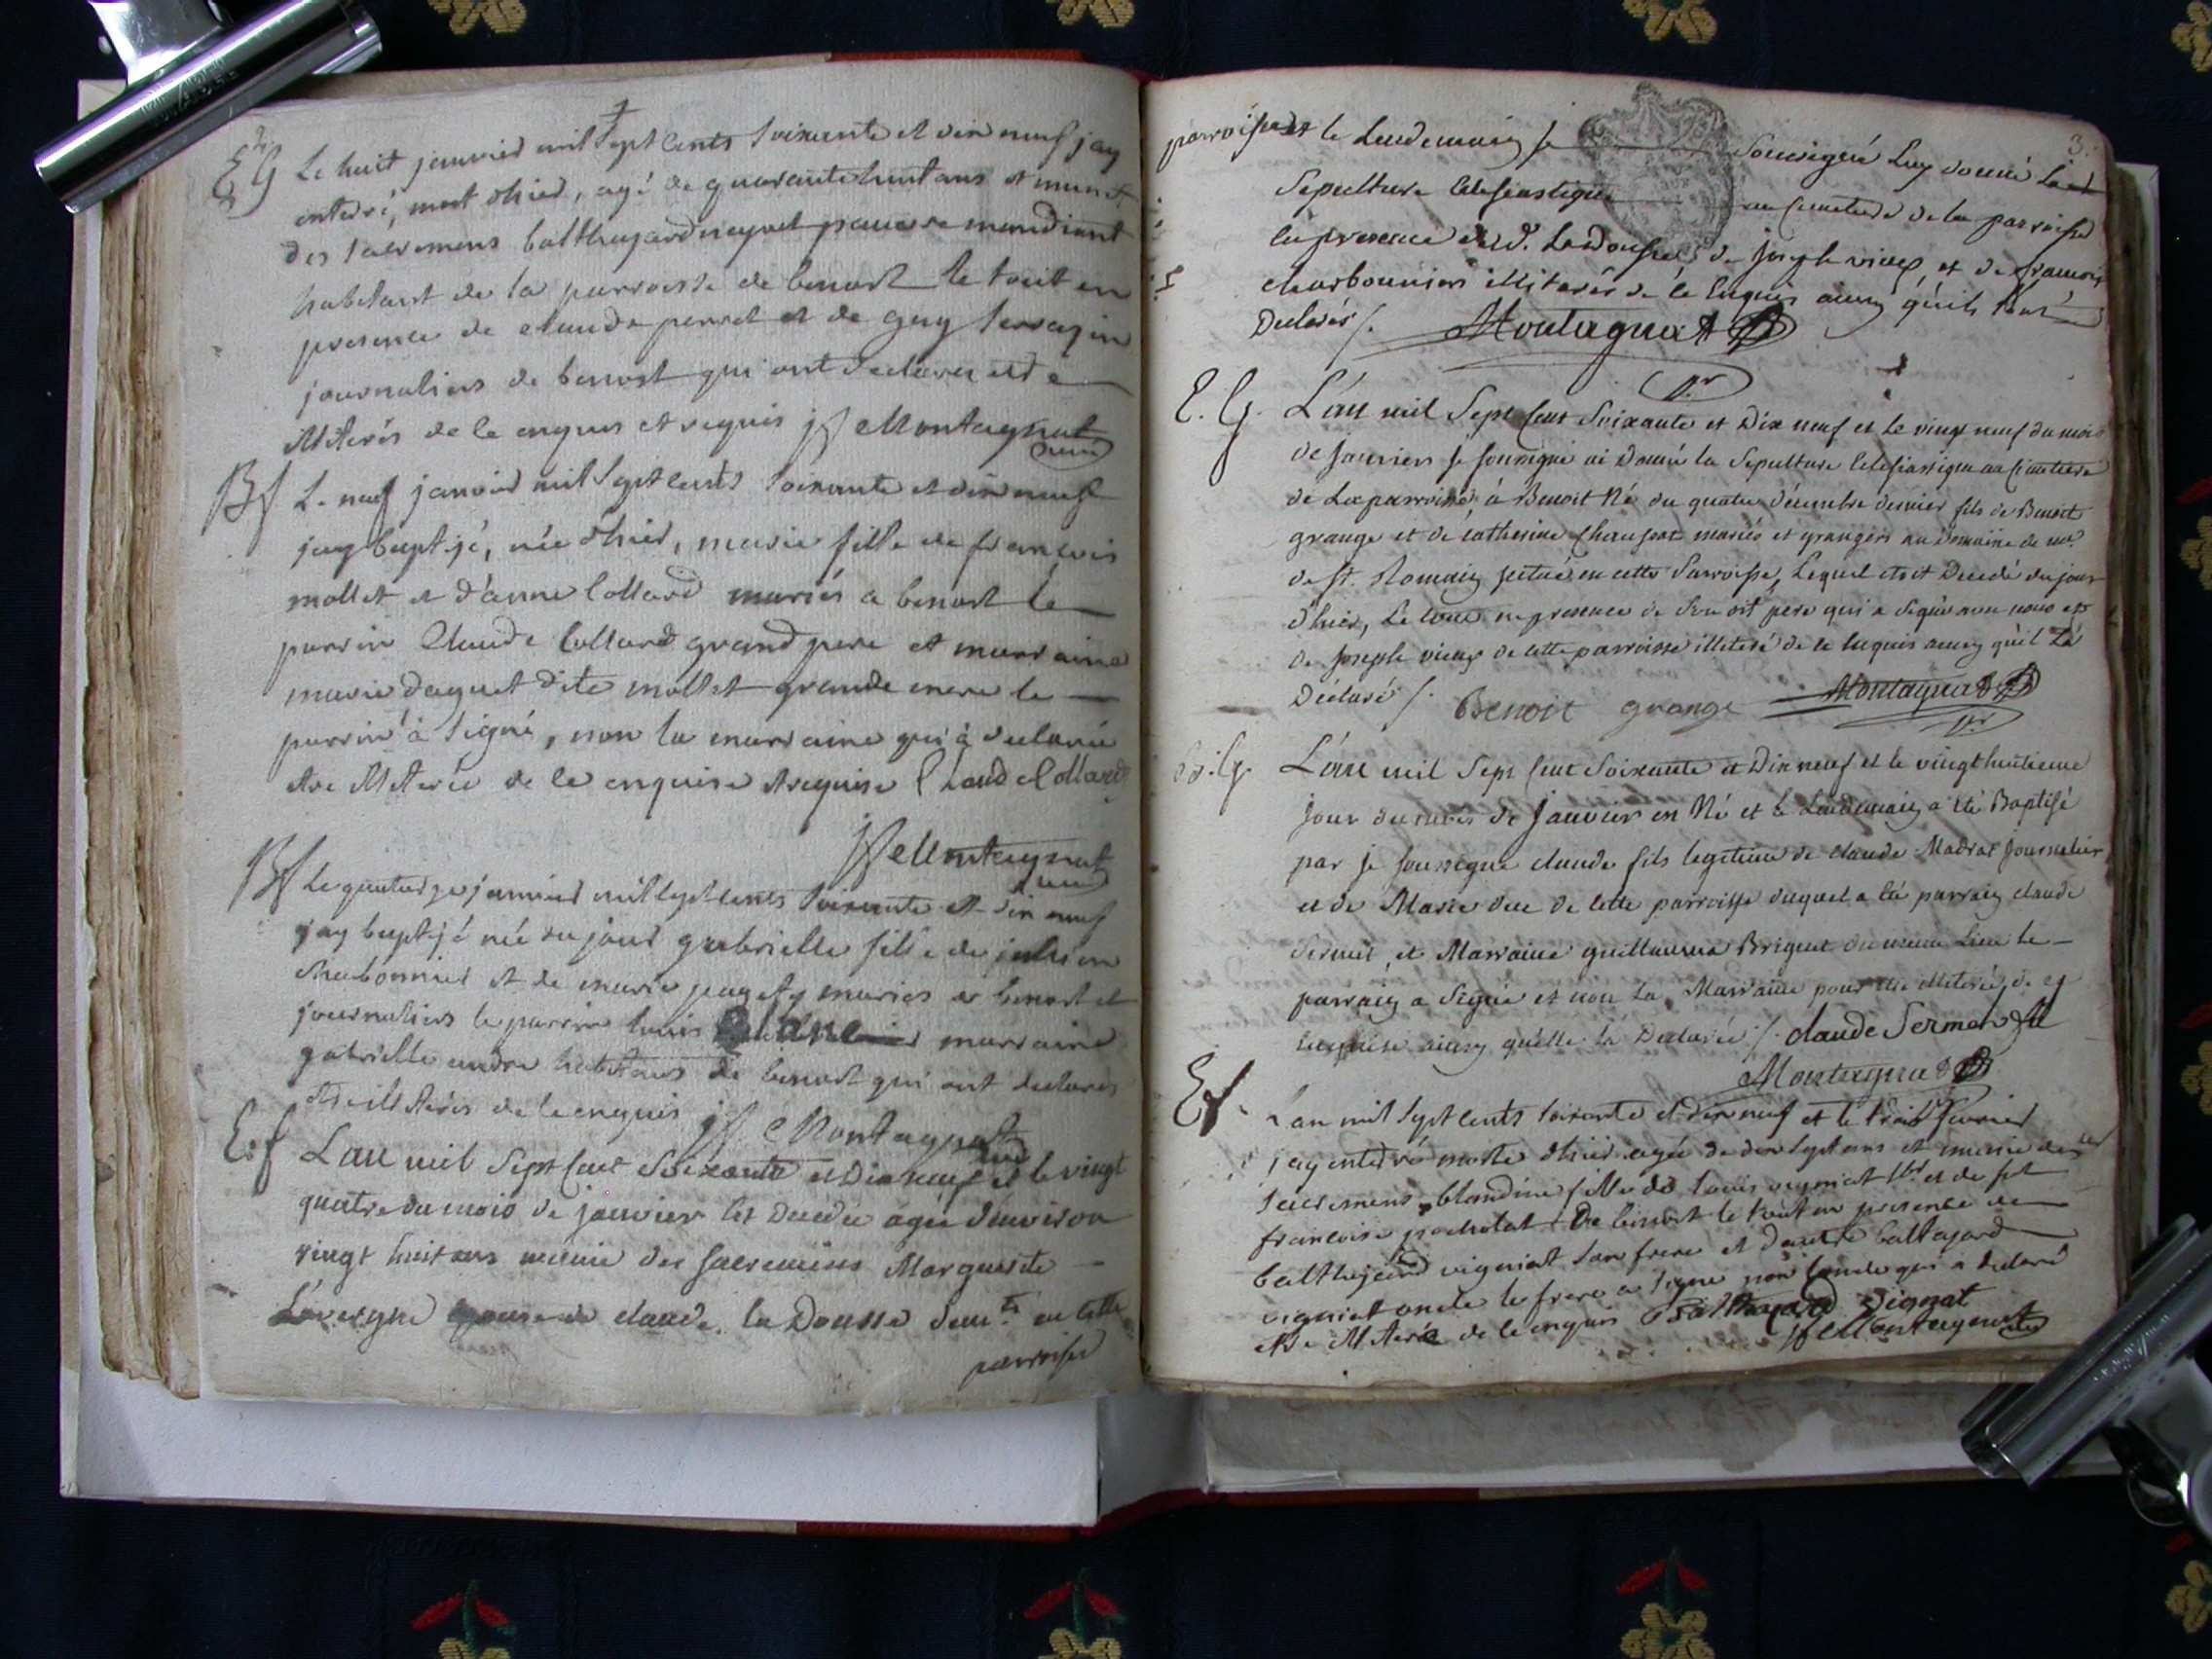 E G Le huit janvier mil sept cents soixante et dix neuf jay
enterré, mort d'hier, agé de quarante huit ans et muni
des sacremens balthazard pauvre mandiant
habitant de la parroisse de benost le tout en
presence de claude perret et de guy
journaliers de benost qui ont declarer etre
illiterés de ce enquis et requis jf Montagnat
curé
Bf Le neuf janvier mil sept cents soixante et dix neuf
jay baptisé, née d'hier, marie fille de francois
mollet et d'anne Collard mariés a benost le
parrin Claude Collard grand pere et marraine
marie daguet dite mollet grande mere le
parrin à signé, non la marraine qui à declarée
etre illiterée de ce enquise et requise Claude Collard
jf Montagnat
curé
Bf Le quatorze janvier mil sept cents soixante et dix neuf
jay baptisé née du jour gabrielle fille de julien
charbonnier et de marie mariés a benost et
journaliers le parrin louis marraine
gabrielle andre habitans de benost qui ont declarés
etre illiterés de ce enquis jf Montagnat
curé
E. f L'an mil sept cent soixante et dix neuf et le vingt
quatre du mois de janvier est decedée agée d'environ
vingt huit ans munie des sacremens Marguerite
Lavergne epouse de claude la Dousse demt. en cette
parroisse
3.
parroisse et le Lendemain je soussigné luy donné la
sepulture eclesiastique au cimetiere de la parroisse
en presence dud. Ladousse, de joseph vieux, et de francois
charbonnier illiterés de ce enquis ainsy qu'ils l'ont
Declarés /. Montagnat
pr
E. G. L'an mil sept cent soixante et dix neuf et le vingt neuf du mois
de janvier je soussigné ai donné la sepulture eclesiastique au cimetiere
de la parroisse, à Benoit Né du quatre décembre dernier fils de Benoit
grange et de catherine mariés et grangers au Domaine de mr.
de st. Romain scitué en cette Parroisse, Lequel etoit Decedé du jour
d'hier, Le tout en presence de son dit pere qui a signé avec nous et
de joseph vieux de cette parroisse illiteré de ce enquis ainsy qu'il l'a
Déclaré /. Benoit grange Montagnat
pr
B. G. L'an mil sept cent soixante et Dix neuf et le vingt huitieme
jour du mois de janvier est Né et le Lendemain a été Baptisé
par je soussigné claude fils legitime de claude Madras journalier
et de Marie de cette parroisse duquel a été parrain claude
et Marraine guillauma Briguet du meme Lieu le
parrain a signé et non la Marraine pour etre illiterée de ce
enquise ainsy qu'elle l'a Declarée /. claude Sermet
Montagnat
Ef. L'an mil sept cents soixante et dix neuf et le trois fevrier
jay enterré morte d'hier agée de dix sept ans et munie des
sacremens blandine fille de louis vigniat et de
francoise pachotat De benost le tout en presence de
balthazard vigniat son frere et d'autre balthazard
vigniat oncle le frere a signé non l'oncle qui a declaré
etre illiteré de ce enquis Balthazard vignat
jf Montagnat